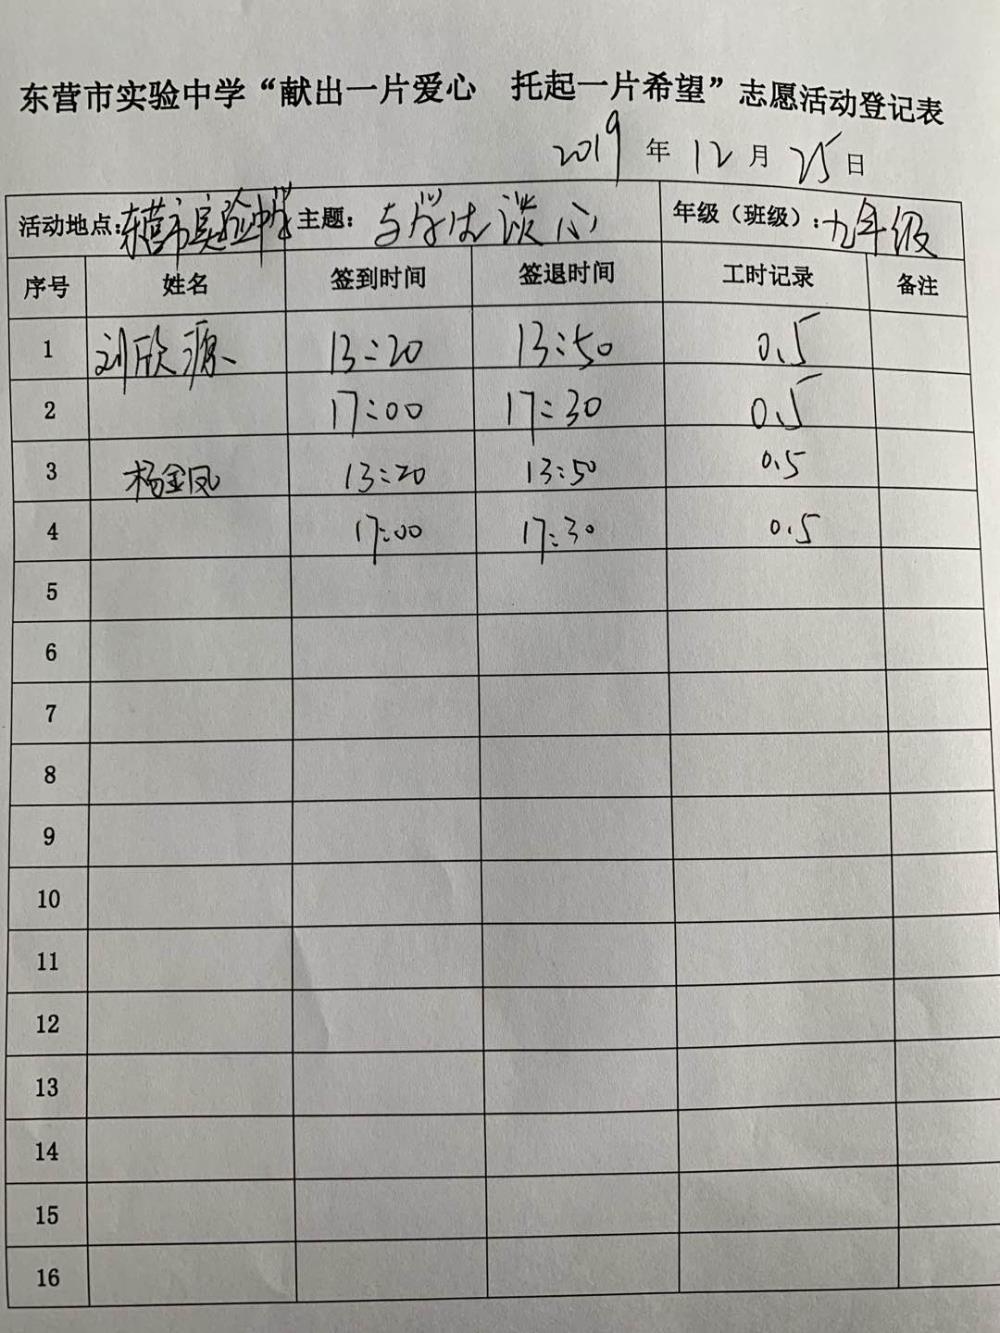 东营市实验中学“献出一片爱心 托起一片希望”志愿活动登记表
2019年12月25日
活动地点:东营市实验中学 主题:与学生谈心 年级（班级）:九年级
序号 姓名 签到时间 签退时间 工时记录 备注
1 刘欣源 13:20 13:50 0.5
2 17:00 17:30 0.5
3 杨金凤 13:20 13:50 0.5
4 17:00 17:30 0.5
5
6
7
8
9
10
11
12
13
14
15
16